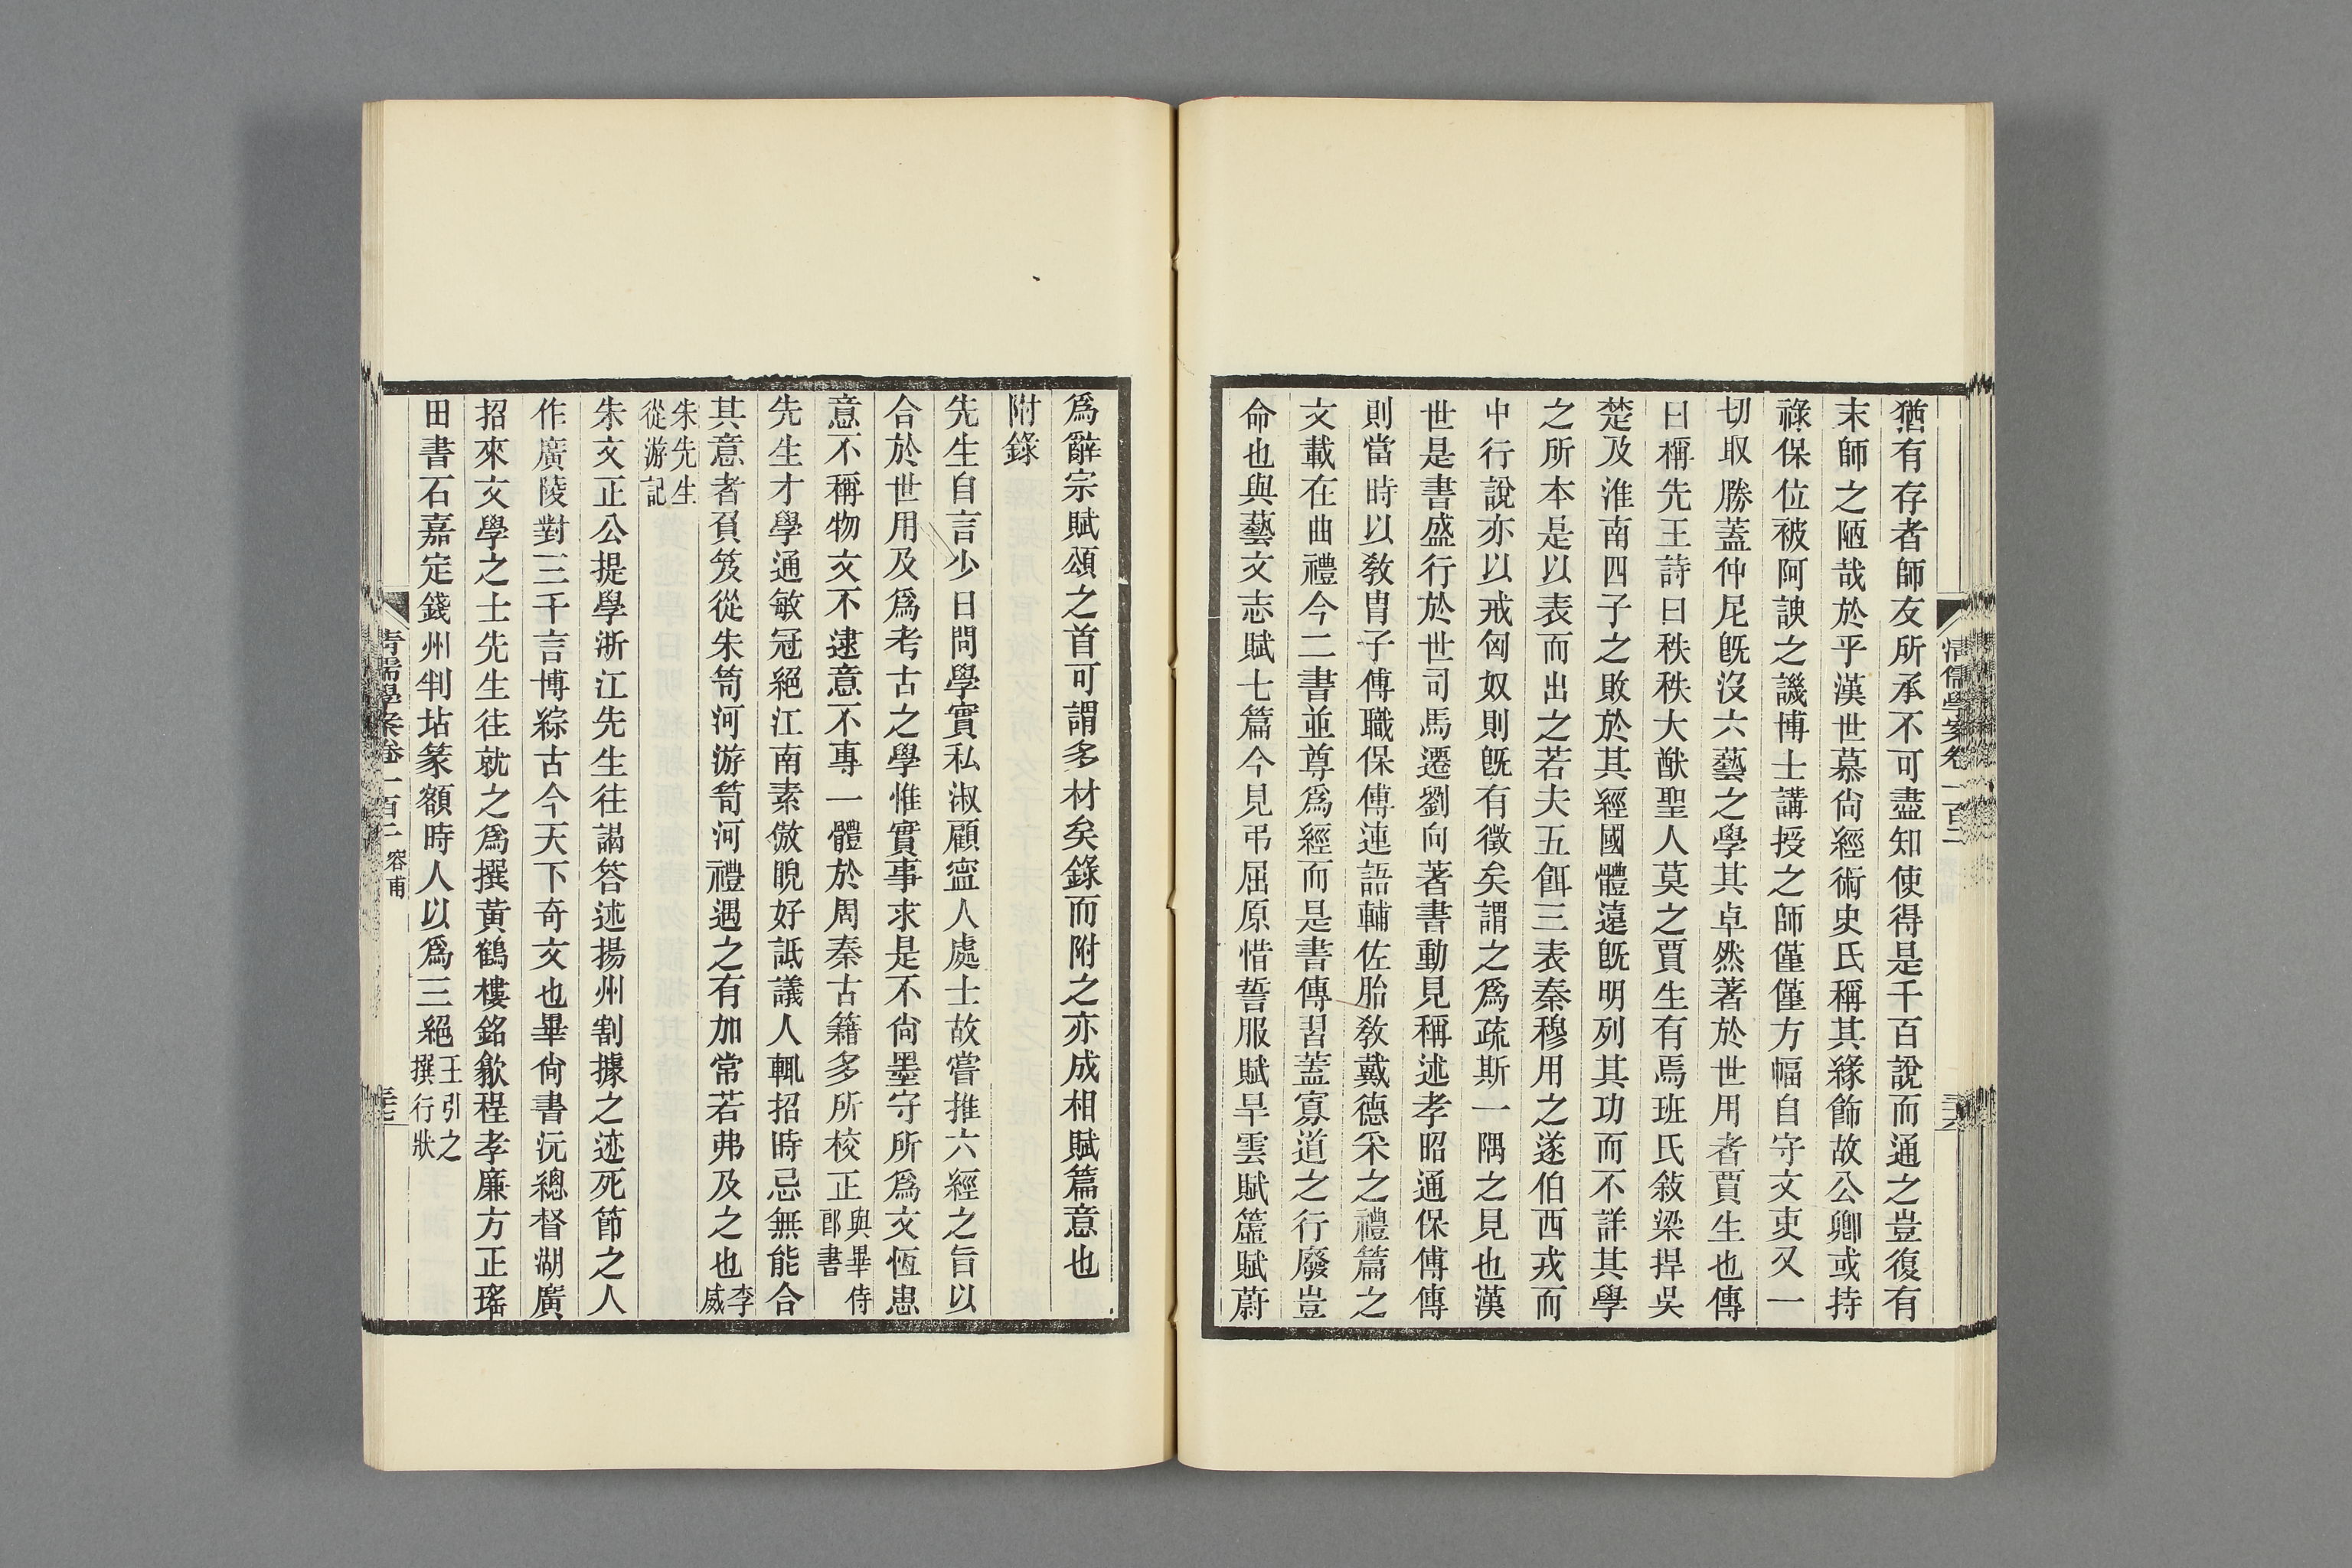 猶有存者師友所承不可盡知使得是千百說而通之豈復有
末師之陋哉於乎漢世慕尙經術史氏稱其緣飾故公卿或持
祿保位被阿諛之譏博士講授之師僅僅方幅自守文吏又一
切取勝蓋仲尼旣沒六藝之學其卓然著於世用者賈生也傳
曰稱先王詩曰秩秩大猷聖人莫之賈生有焉班氏敍梁捍吳
楚及淮南四子之敗於其經國體遠旣明列其功而不詳其學
之所本是以表而出之若夫五餌三表秦穆用之遂伯西戎而
中行說亦以戒匈奴則旣有徵矣謂之爲疏斯一隅之見也漢
世是書盛行於世司馬遷劉向著書動見稱述孝昭通保傅傳
則當時以敎胄子傅職保傅連語輔佐胎敎戴德采之禮篇之
文載在曲禮今二書並尊爲經而是書傳習蓋寡道之行廢豈
命也與藝文志賦七篇今見弔屈原惜誓服賦旱雲賦簴賦蔚
清儒學案卷一百二
三六
爲辭宗賦頌之首可謂多材矣錄而附之亦成相賦篇意也
附錄
先生自言少日問學實私淑顧寍人處士故嘗推六經之旨以
合於世用及爲考古之學惟實事求是不尙墨守所爲文恆患
意不稱物文不逮意不專一體於周秦古籍多所校正與畢侍郎書
先生才學通敏冠絕江南素傲睨好詆議人輒招時忌無能合
其意者負笈從朱笥河游笥河禮遇之有加常若弗及之也李威
朱先生從游記
朱文正公提學浙江先生往謁答述揚州割據之迹死節之人
作廣陵對三千言博綜古今天下奇文也畢尙書沅總督湖廣
招來文學之士先生往就之爲撰黃鶴樓銘歙程孝廉方正瑤
田書石嘉定錢州判坫篆額時人以爲三絕王引之撰行狀
清儒學案卷一百二 容甫
三七